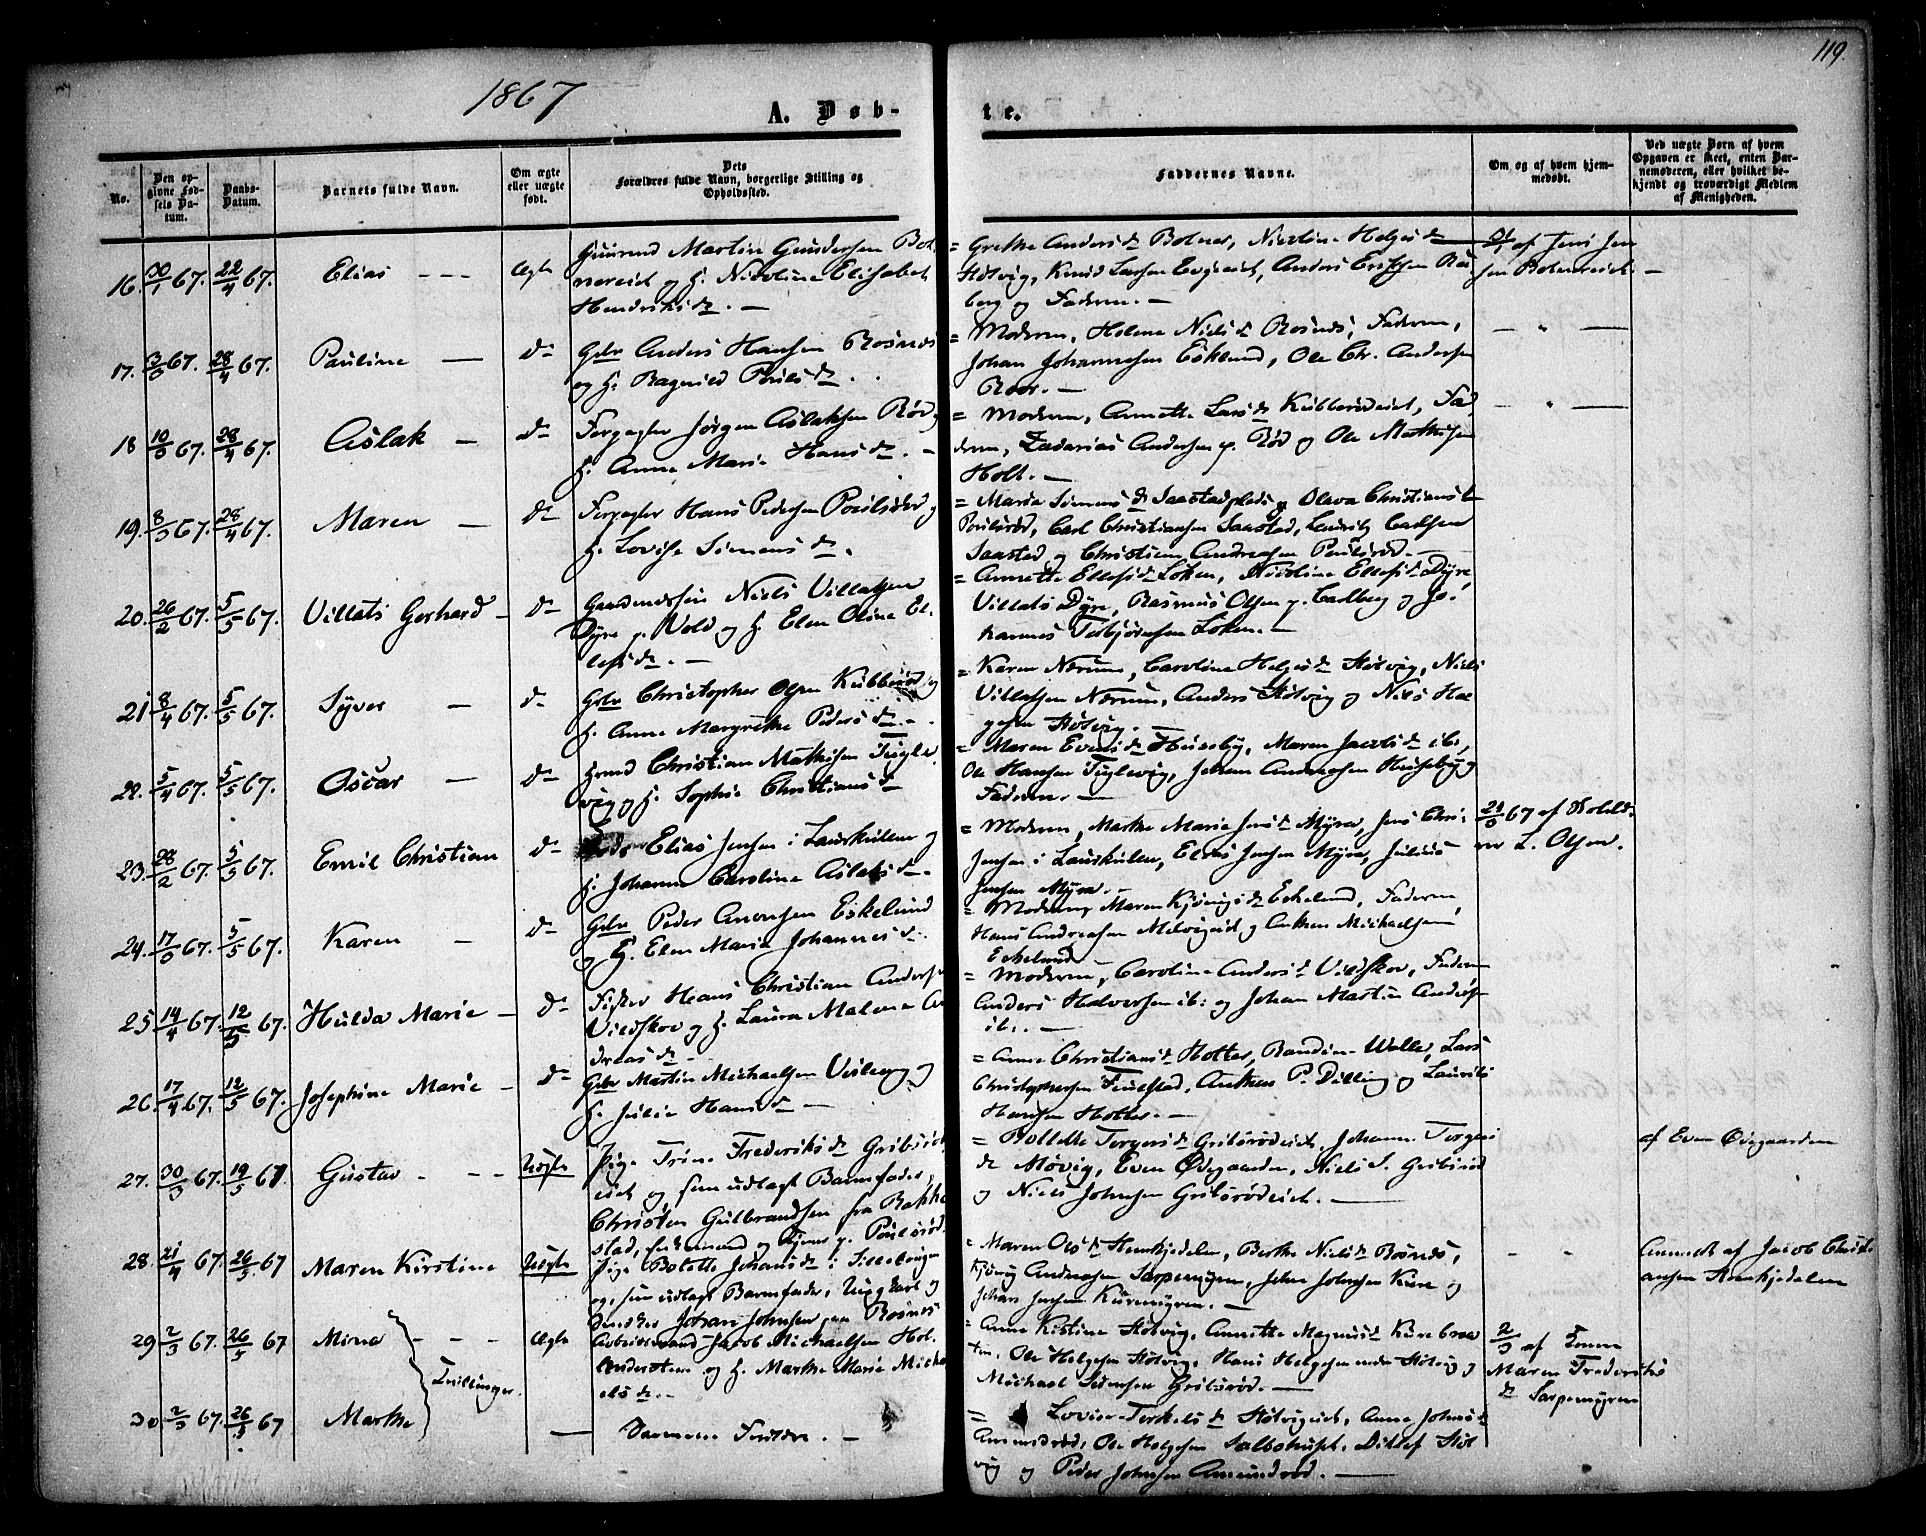 119.
1867
A. Døb-
te.
No.
Den op-
givne Fød-
sels Da-
tum.
Daabs-
Datum.
Barnets fulde Navn.
Om ægte
eller uægte
født.
Dets
Forældres fulde Navn, borgerlige Stilling og
Opholdssted.
Faddernes Navne.
Om og af hvem hjem-
medøbt.
Ved uægte Børn af hvem
Opgaven er skeet, enten Bar-
nemoderen, eller hvilket be-
kjendt og troværdigt Medlem
af Menigheden.
16. 30/1 67. 22/4 67. Elias - - - Ægte
Gunerud Martin Gundersen Bol-
nereiet og H. Nicoline Elisabet
Hendriksd. -
= Grethe Andersd. Bolner, Nicoline Helgesd.
Støtvig, Knud Larsen Evjeeiet, Anders Ericksen Re-
berg og Faderen. -
af Jens Jen
sen Bolnereiet. -
17. 3/3 67. 28/4 67. Pauline - do
Gbr Anders Hansen Rosnes
og H. Ragnild Poulsd. .
= Moderen, Helene Nielsd. Rosnes, Faderen,
Johan Johannesen Eskelund, Ole Chr. Andersen
Roer. -
- " -
18 10/3 67. 28/4 67. Aslak - do
Forpagter Jørgen Aslaksen Rød og
H. Anne Marie Hansd. -
= Moderen, Annette Larsd. Kubberødeiet, Fa-
deren, Zacarias Andersen p. Rød og Ole Mathisen
Holt. -
- " -
19. 8/3 67. 28/4 67. Maren - do
Forpagter Hans Pedersen Poulsrød og
H. Lovise Simensd.
= Marie Simensd. Saastadplads og Oleva Christiansd.
Poulsrød, Carl Christiansen Saastad, Lauritz Carlsen
Saastad og Christian Andreasen Poulsrød. -
20. 26/2 67. 5/5 67. Villats Gerhard - do
Gaardmandssøn Niels Villatsen
Dyre p. Vold og H. Elen Oline El-
lefsd. -
= Annette Ellefsd. Løken, Nicoline Ellefsd. Dyre,
Villats Dyre, Rasmus Olsen p. Carlberg og Jo-
hannes Torbjørnsen Løken. -
21 8/4 67. 5/5 67. Syver - do
Gbr Christopher Olsen Kubberød og
H. Anne Margrethe Pedersd. -
= Karen Nærum, Caroline Helgesd. Støtvig, Niels
Villatsen Nærum, Anders Støtvig og Niels Hel-
gesen Støtvig. -
22. 5/4 67. 5/5 67. Oscar - do
Hmd Christian Mathisen Fugle-
vig og H. Sophie Christiansd.
= Maren Evensd. Huseby, Maren Jacobsd. ib:,
Ole Hansen Fuglevig, Johan Andreasen Huseby og
Faderen. -
23. 28/2 67. 5/5 67. Emil Christian do
Elias Jensen i Laurkullen og
H. Johanne Caroline Aslaksd. -
= Moderen, Marthe Marie Jensd. Myra, Jens Chri:
Jensen i Laurkullen, Elias Jensen Myra, Julius
Jensen Myra. -
67 af
L. Olsen.
24. 17/3 67. 5/5 67. Karen - do
Gbr Peder Aronsen Eskelund
og H. Elen Maria Johannesd.
= Moderen, Maren Kjønigsd. Eskelund, Faderen,
Hans Andreasen Melvigeiet og Anthon Michaelsen
Eskelund. -
25 14/4 67. 12/5 67. Hulda Marie - do
Fisker Hans Christian Andersen
Vildskov og H. Laura Malena An-
dreasd. -
= Moderen, Caroline Andersd. Vildskov, Faderen
Anders Halvorsen ib: og Johan Martin Anders
ib:. -
26. 17/4 67. 12/5 67. Josephine Marie - do
Gbr Martin Michaelsen Veiberg og
H. Julie Hansd. -
= Anne Christiansd. Holter, Bandine Walle, Lars
Christophersen Fuglstad, Anthon P. Dilling og Laurits
Hansen Holter. -
27. 30/3 67. 19/5 67 Gustav - - - Uægte
Pige Trine Frederiksd. Gribsrød-
eiet og som udlagt Barnefader,
Christen Gulbrandsen fra Rakke-
stad, Enkemand og tjener p. Poulsrød.
= Bollette Torgersd. Gribsrødeiet, Johanne Torgers
d. Møvig, Even Ødegaarden, Niels S. Gribsrød
og Niels Johnsen Gribsrødeiet. -
af Even Ødegaarden
28. 21/4 67. 26/5 67 Maren Kirstine Uægte
Pige Bolette Johansd. i Tillebugen
og, som udlagt Barnefader, Ungkarl og
Dansker Johan Johnsen paa Rosnes
= Maren Olsd. Henkjedelen, Berthe Nielsd. Rosnes,
Kjønig Andreasen Sarpemyren, John Johnsen Kure og
Johan Jensen Kuremyren. -
- -
Anmeldt af Jacob Christi-
ansen Henkjedelen
29 2/3 67. 26/5 67 Mina - - - Ægte
Arbeidsmand Jacob Michaelsen Hol-
lenderstuen og H. Marthe Marie Micha-
elsd. -
= Anne Kistine Støtvig, Annette Magnusd. Kurebraa-
ten, Ole Helgesen Støtvig, Hans Helgesen nedre Støtvig og
Michael Sørensen Gribsrød. -
2/3 af Konen
Maren Frederiks
d. Sarpemyren
Tvillinger.
30 2/3 67. 26/5 67 Marthe -
Sammene Forældre. -
= Lovise Terkelsd. Støtvigeiet, Anne Johnsd.
Amundrød, Ole Helgesen Salbohuset, Ditlef Støt-
vig og Peder Johnsen Amundrød. -